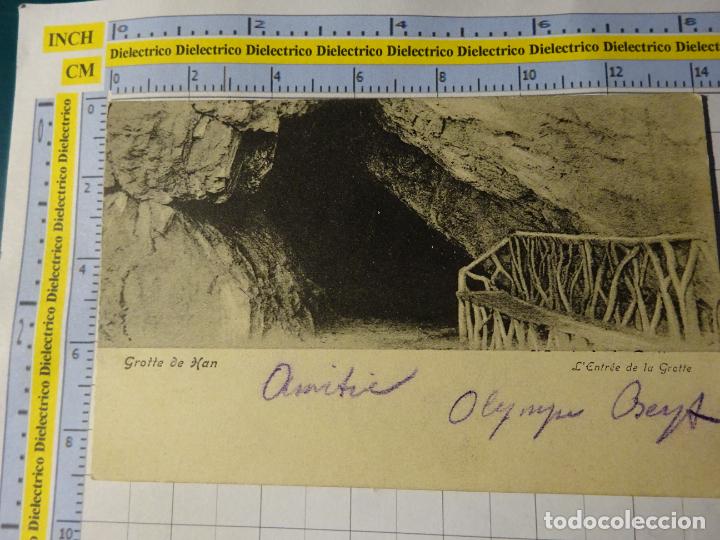 INCH 0 2 4 6 8
Dielectrico Dielectrico Dielectrico Dielectrico Dielectrico Dielectrico Dielectrico Dielectrico Dielectrico
CM 0 2 4 6 8 10 12 14
Dielectrico Dielectrico Dielectrico Dielectrico Dielectrico Dielectrico Dielectrico
0 2 4 6 8 10
0 2
Grotte de Han
L'Entrée de la Grotte
Amitié
Olympe
todocoleccion
todocoleccion.net